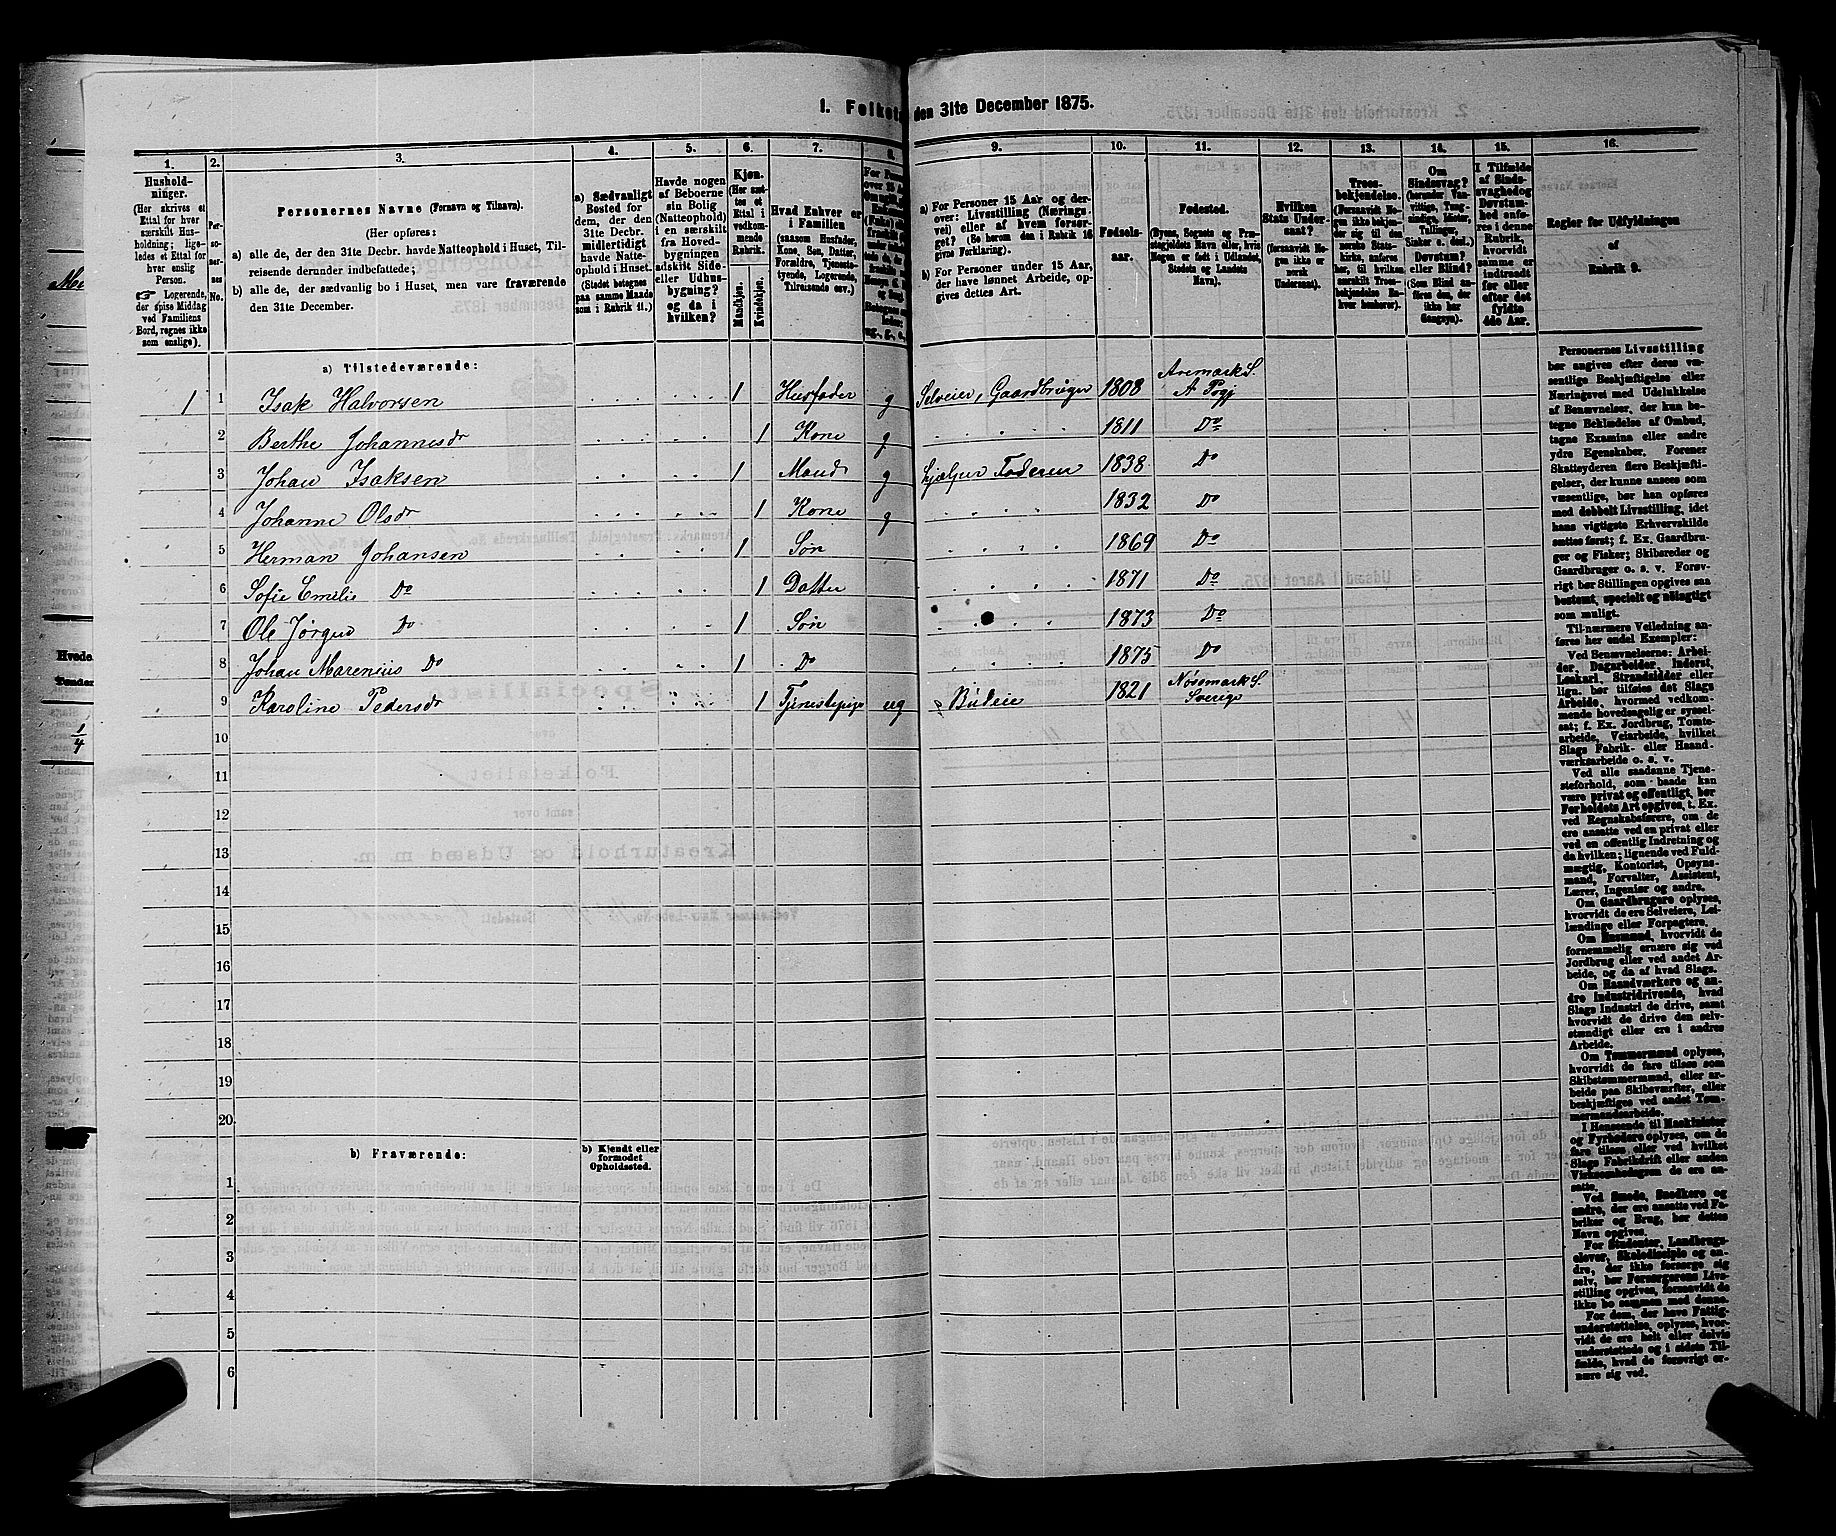 1. Folketa den 31te December 1875.
1. 2. 3. 4. 5. 6. 7. 8. 9. 10. 11. 12. 13. 14. 15. 16.
Hushold-
ninger.
(Her skrives et
Ettal for hver
særskilt Hus-
holdning; lige-
ledes et Ettal
for hver enslig
Person.
☞ Logerende,
der spise Middag
ved Familiens
Bord, regnes ikke
som enslige).
Per-
so-
ner-
nes
No.
Personernes Navne (Fornavn og Tilnavn).
(Her opføres:
a) alle de, der den 31te Decbr. havde Natteophold i Huset, Til-
reisende derunder indbefattede;
b) alle de, der sædvanlig bo i Huset, men vare fraværende
den 31te December.
a) Sædvanligt
Bosted for
dem, der den
31te Decbr.
midlertidigt
havde Natte-
ophold i Huset.
(Stedet betegnes
paa samme Maade
som i Rubrik 11.)
Havde nogen
af Beboerne
sin Bolig
(Natteophold)
i en særskilt
fra Hoved-
bygningen
adskilt Side-
eller Udhus-
bygning?
og da i
hvilken?
Kjøn.
(Her sæt-
tes et
Ettal i
vedkom-
mende
Rubrik.
Mandkjøn.
Kvindekjøn.
Hvad Enhver er
i Familien
(saasom Husfader,
Kone, Søn, Datter,
Forældre, Tjeneste-
tyende, Logerende,
Tilreisende osv.)
a) For Personer 15 Aar og der-
over: Livsstilling (Nærings-
vei) eller af hvem forsør-
get? (Se herom den i Rubrik 16
givne Forklaring).
b) For Personer under 15 Aar,
der have lønnet Arbeide, op-
gives dettes Art.
Fødsels-
aar.
Fødested.
(Byens, Sognets og Præ-
stegjeldets Navn eller, hvis
Nogen er født i Udlandet,
Stedets og Landets
Navn).
Hvilken
Stats Under-
saat?
(forsaavidt No-
gen ikke er
norsk
Undersaat).
Troes-
bekjendelse.
(Forsaavidt No-
gen ikke be-
kjender sig til
den norske
Stats-
kirke, anføres
her, til hvilken
særskilt Troes-
bekjendelse En-
hver henhører).
Om
Sindssvag?
(herunder Van-
vittige, Tung-
sindige, Idioter,
Tullinger,
Sinker o. desl.)
Døvstum?
eller Blind?
(Som Blind an-
føres den, der
ikke har
Gangsyn).
I Tilfælde
af Sinds-
svaghed og
Døvstum-
hed anfø-
res i denne
Rubrik,
hvorvidt
samme er
indtraadt
før eller
efter det
fyldte
4de Aar.
Regler for Udfyldningen
af
Rubrik 9.
a) Tilstedeværende:
1 1 Isak Halvorsen 1 Husfader g Selveier, Gaardbruger 1808 Aremark S. A Pgj
2 Berthe Johannesdr 1 Kone g 1811 Do
3 Johan Isaksen 1 Mand g hjælper Faderen 1838 Do
4 Johanne Olsdr 1 Kone g 1832 Do
5 Herman Johansen 1 Søn 1869 Do
6 Sofie Emelie Do 1 Datter 1871 Do
7 Ole Jørgen Do 1 Søn 1873 Do
8 Johan Marenius Do 1 Do 1875 Do
9 Karoline Pedersdr 1 Tjenestepige ug Budeie 1821 Nøsemark S. Sverige
10
11
12
13
14
15
16
17
18
19
20
b) Fraværende:
b) Kjendt eller
formodet
Opholdssted.
1
2
3
4
5
6
Personernes Livsstilling
bør angives efter deres væ-
sentlige Beskjæftigelse eller
Næringsvei med Udelukkelse
af Benævnelser, der kun be-
tegne Beklædelse af Ombud,
tagne Examina eller andre
ydre Egenskaber. Forener
Skatteyderen flere Beskjæfti-
gelser, der kunne ansees som
væsentlige, bør han opføres
med dobbelt Livsstilling, idet
hans vigtigste Erhvervskilde
sættes først; f. Ex. Gaardbru-
ger og Fisker; Skibsreder og
Gaardbruger o. s. v. Forøv-
rigt bør Stillingen opgives saa
bestemt, specielt og nøiagtigt
som muligt.
Til nærmere Veiledning an-
føres her endel Exempler:
Ved Benævnelserne: Arbei-
der, Dagarbeider, Inderst,
Løskarl, Strandsidder eller
lign. bør tilføies det Slags
Arbeide, hvormed vedkom-
mende hovedsagelig er syssel-
sat; f. Ex. Jordbrug, Tomte-
arbeide, Veiarbeide, hvilket
Slags Fabrik- eller Haand-
værksarbeide o. s. v.
Ved alle saadanne Tjene-
steforhold, som baade kan
være privat og offentligt, bør
Forholdets Art opgives, t. Ex.
ved Regnskabsførere, om de
ere ansatte ved en privat eller
ved en offentlig Indretning og
da hvilken; lignende ved Fuld-
mægtig, Kontorist, Opsyns-
mand, Forvalter, Assistent,
Lærer, Ingeniør og andre.
Om Gaardbrugere oplyses,
hvorvidt de ere Selveiere, Lei-
lændinge eller Forpagtere.
Om Husmænd, hvorvidt de
fornemmelig ernære sig ved
Jordbrug eller ved andet Ar-
beide, og da af hvad Slags.
Om Haandværkere og an-
dre Industridrivende, hvad
Slags Industri de drive, samt
hvorvidt de drive den selv-
stændigt eller ere i andres
Arbeide.
Om Tømmermænd oplyses,
hvorvidt de fare tilsøs som
Skibstømmermænd, eller ar-
beide paa Skibsværfter, eller
beskjæftiges ved andet Tøm-
mermandsarbeide.
I Henseende til Maskinister
og Fyrbødere oplyses, om de
fare tilsøs eller ved hvilket
Slags Fabrikdrift eller anden
Virksomhed de ere an-
satte.
Ved Smede, Snedkere og
andre, der ere ansatte ved Fa-
briker og Brug, bør dettes
Navn opgives.
For Studenter, Landbrugs-
elever, Skoledisciple og an-
dre, der ikke forsørge sig
selv, bør Forsørgerens Livs-
stilling opgives, forsaavidt de
ikke bo sammen med denne.
For dem, der have Fattig-
understøttelse, oplyses, hvor-
vidt de ere helt eller delvis
understøttede og i sidste Til-
fælde, hvad de forøvrigt er-
nære sig ved.